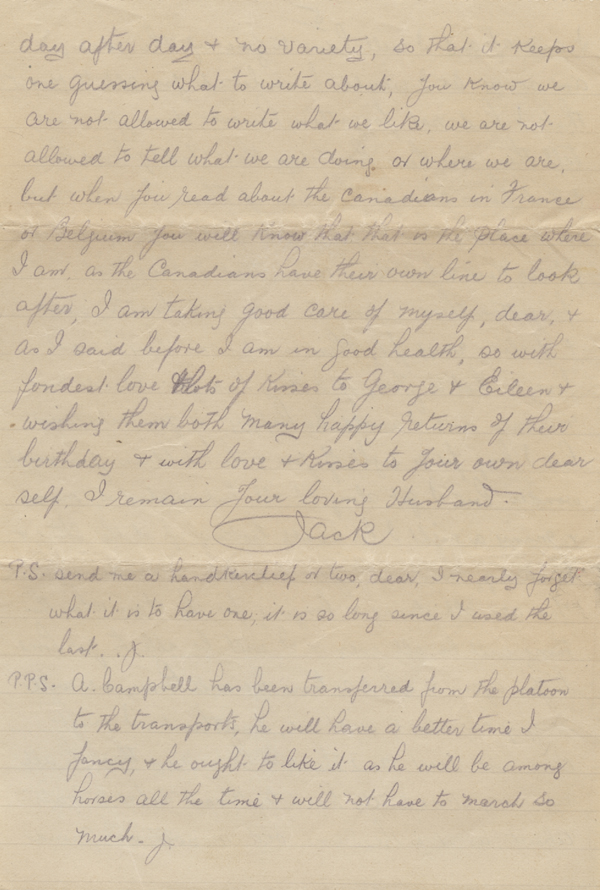 day after day & no variety, so that it keeps
one guessing what to write about, you know we
are not allowed to write what we like, we are not
allowed to tell what we are doing or where we are,
but when you read about the Canadians in France
or Belgium you will know that that is the place where
I am, as the Canadians have their own line to look
after, I am taking good care of myself, dear, &
as I said before I am in good health, so with
fondest love lots of Kisses to George & Eileen &
wishing them both many happy returns of their
birthday & with love & Kisses to your own dear
self. I remain Your loving Husband.
Jack
P.S. send me a handkerchief or two, dear, I nearly forget
what it is to have one, it is so long since I used the
last.. J.
P.P.S. A. Campbell has been transferred from the platoon
to the transports, he will have a better time I
fancy, & he ought to like it as he will be among
horses all the time & will not have to march so
much. J